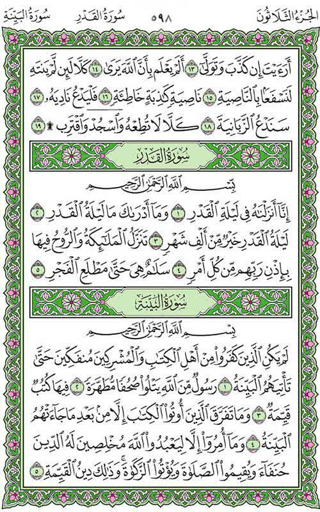 الجزء الثلاثون ٥٩٨ سورة القدر سورة البينة
أَرَءَيْتَ إِن كَذَّبَ وَتَوَلَّىٰ ١٣ أَلَمْ يَعْلَم بِأَنَّ ٱللَّهَ يَرَىٰ ١٤ كَلَّا لَئِن لَّمْ يَنتَهِ
لَنَسْفَعًۢا بِٱلنَّاصِيَةِ ١٥ نَاصِيَةٍ كَٰذِبَةٍ خَاطِئَةٍ ١٦ فَلْيَدْعُ نَادِيَهُۥ ١٧
سَنَدْعُ ٱلزَّبَانِيَةَ ١٨ كَلَّا لَا تُطِعْهُ وَٱسْجُدْ وَٱقْتَرِب ۩ ١٩
سُورَةُ القَدْرِ
بِسْمِ ٱللَّهِ ٱلرَّحْمَٰنِ ٱلرَّحِيمِ
إِنَّآ أَنزَلْنَٰهُ فِى لَيْلَةِ ٱلْقَدْرِ ١ وَمَآ أَدْرَىٰكَ مَا لَيْلَةُ ٱلْقَدْرِ ٢
لَيْلَةُ ٱلْقَدْرِ خَيْرٌ مِّنْ أَلْفِ شَهْرٍ ٣ تَنَزَّلُ ٱلْمَلَٰٓئِكَةُ وَٱلرُّوحُ فِيهَا
بِإِذْنِ رَبِّهِم مِّن كُلِّ أَمْرٍ ٤ سَلَٰمٌ هِىَ حَتَّىٰ مَطْلَعِ ٱلْفَجْرِ ٥
سُورَةُ البَيِّنَةِ
بِسْمِ ٱللَّهِ ٱلرَّحْمَٰنِ ٱلرَّحِيمِ
لَمْ يَكُنِ ٱلَّذِينَ كَفَرُوا۟ مِنْ أَهْلِ ٱلْكِتَٰبِ وَٱلْمُشْرِكِينَ مُنفَكِّينَ حَتَّىٰ
تَأْتِيَهُمُ ٱلْبَيِّنَةُ ١ رَسُولٌ مِّنَ ٱللَّهِ يَتْلُوا۟ صُحُفًا مُّطَهَّرَةً ٢ فِيهَا كُتُبٌ
قَيِّمَةٌ ٣ وَمَا تَفَرَّقَ ٱلَّذِينَ أُوتُوا۟ ٱلْكِتَٰبَ إِلَّا مِنۢ بَعْدِ مَا جَآءَتْهُمُ
ٱلْبَيِّنَةُ ٤ وَمَآ أُمِرُوٓا۟ إِلَّا لِيَعْبُدُوا۟ ٱللَّهَ مُخْلِصِينَ لَهُ ٱلدِّينَ
حُنَفَآءَ وَيُقِيمُوا۟ ٱلصَّلَوٰةَ وَيُؤْتُوا۟ ٱلزَّكَوٰةَ وَذَٰلِكَ دِينُ ٱلْقَيِّمَةِ ٥